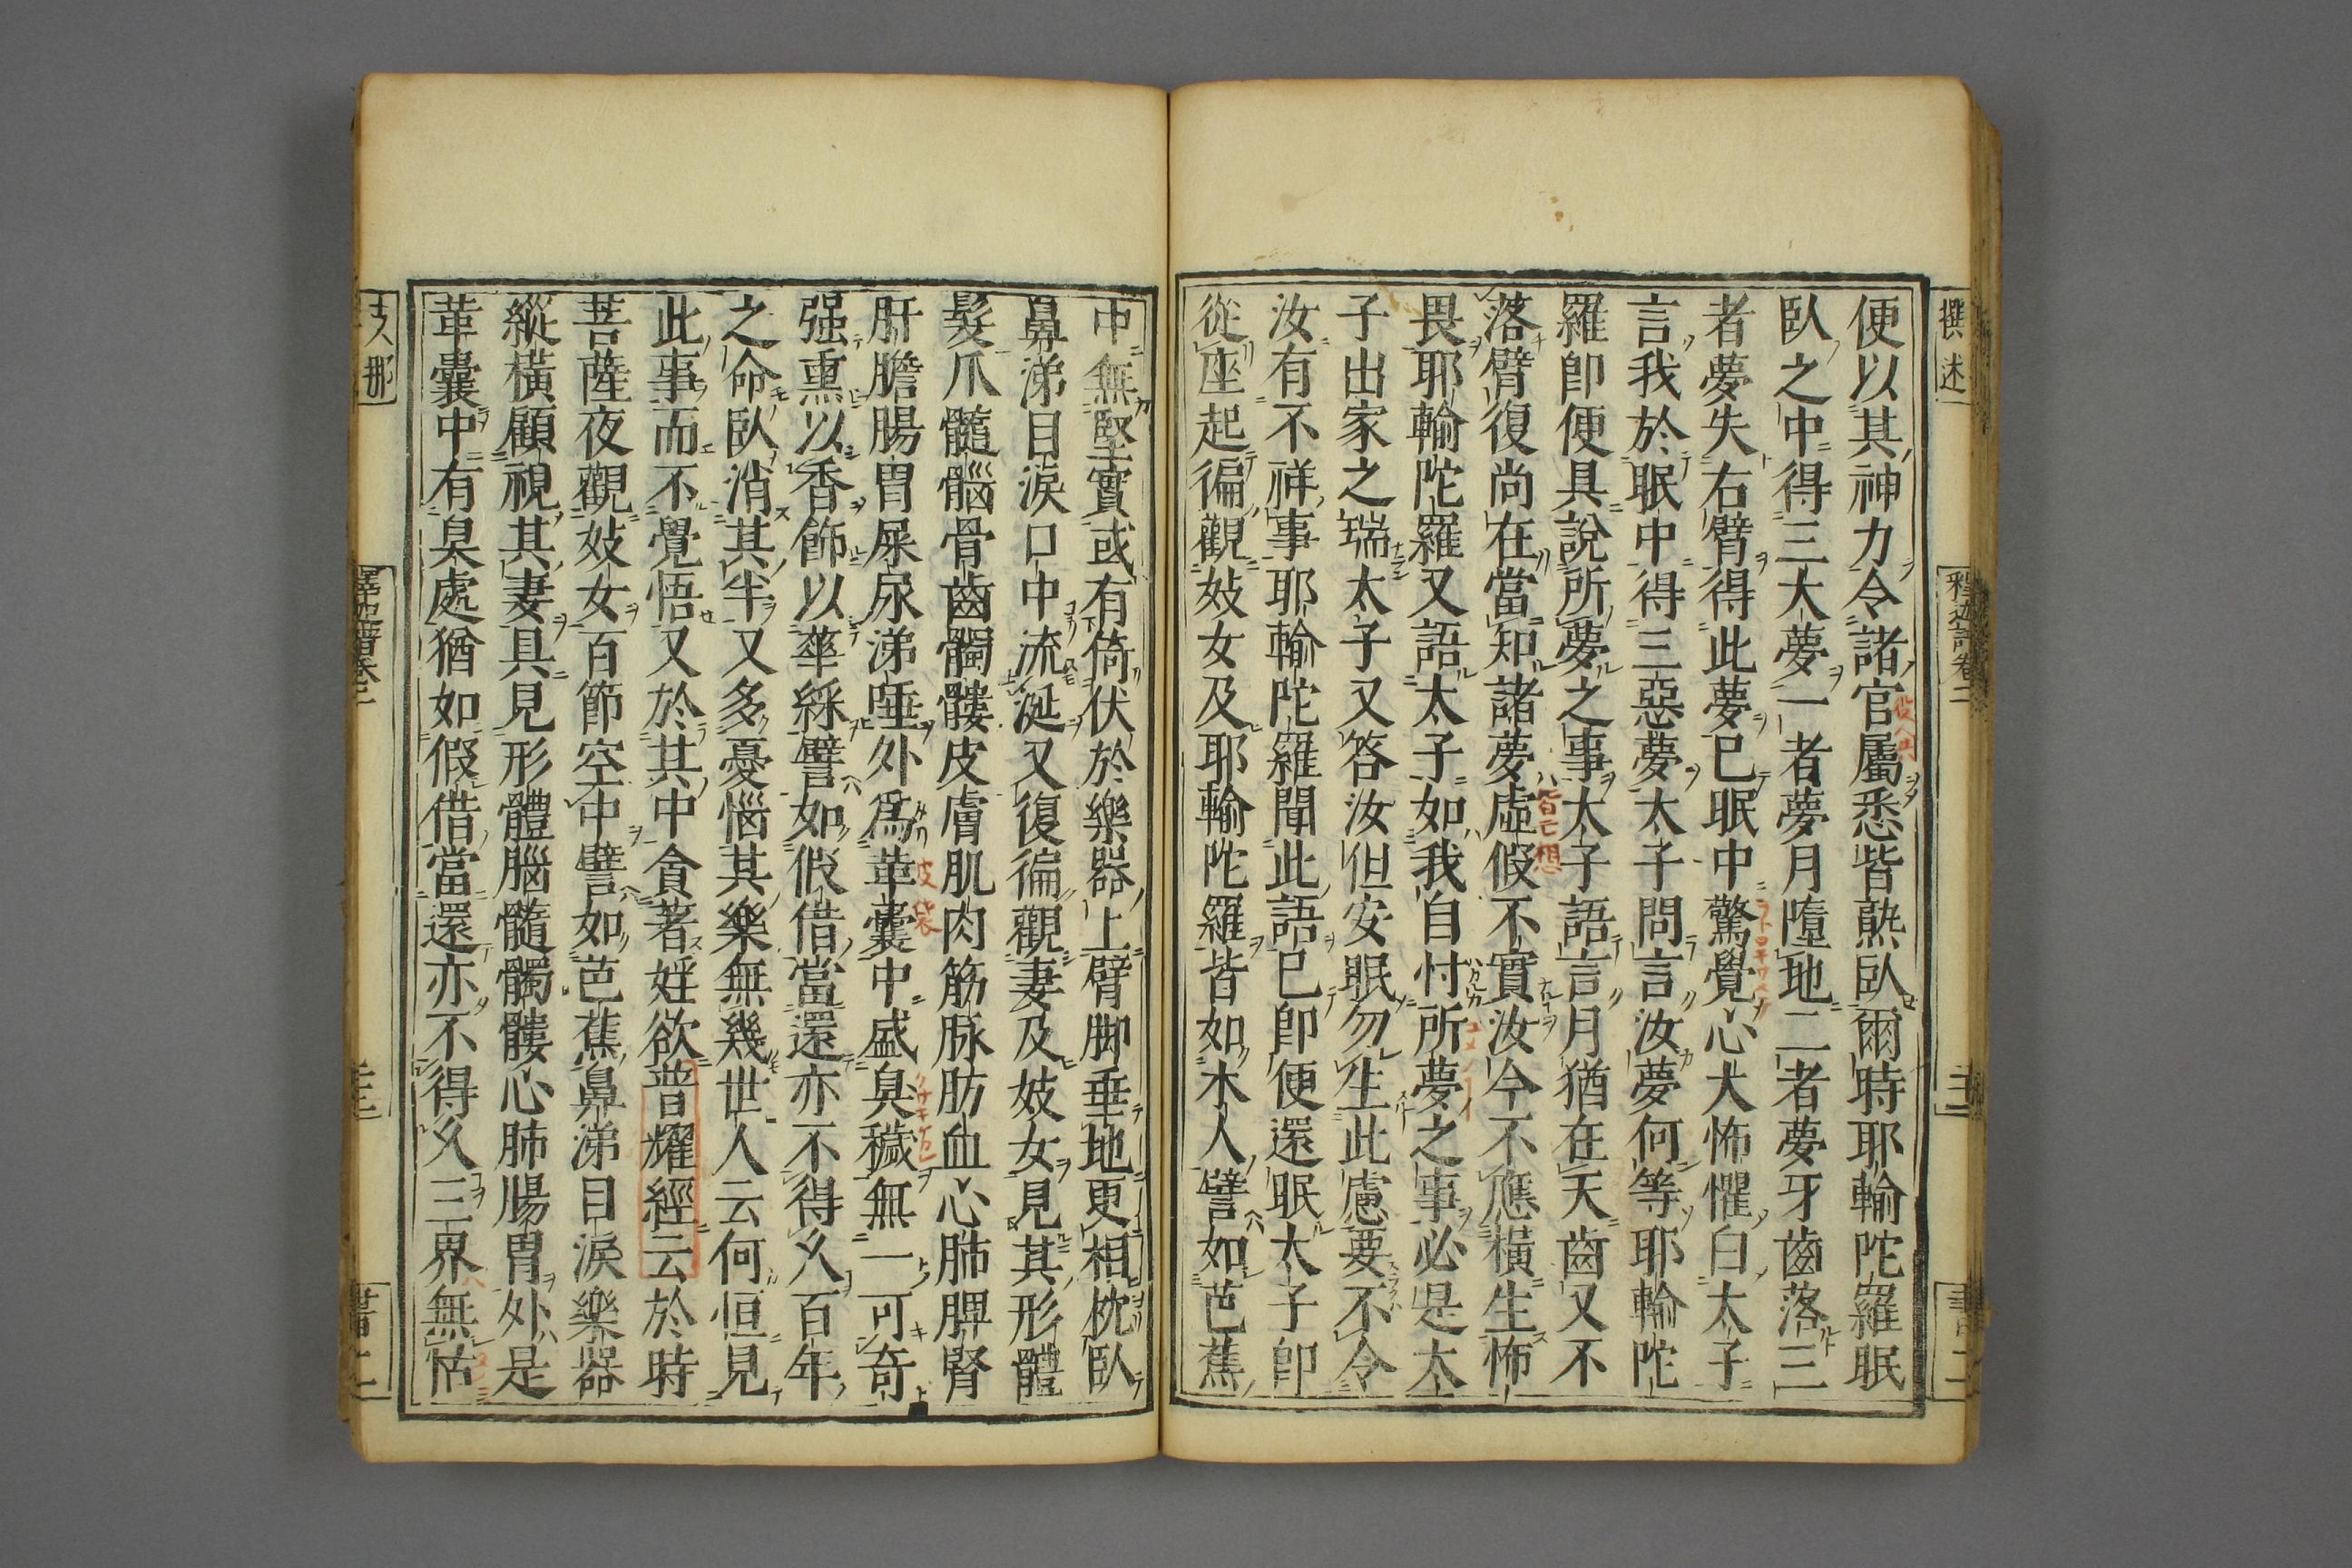 撰述
釋迦譜卷二
便以其神力令諸官屬悉皆熟臥爾時耶輸陀羅眠
臥之中得三大夢一者夢月墮地二者夢牙齒落三
者夢失右臂得此夢已眠中驚覺心大怖懼白太子
言我於眠中得三惡夢太子問言汝夢何等耶輸陀
羅卽便具說所夢之事太子語言月猶在天齒又不
落臂復尚在當知諸夢虛假不實汝今不應橫生怖
畏耶輸陀羅又語太子如我自忖所夢之事必是太
子出家之瑞太子又答汝但安眠勿生此慮要不令
汝有不祥事耶輸陀羅聞此語已卽便還眠太子卽
從座起徧觀妓女及耶輸陀羅皆如木人譬如芭蕉
中無堅實或有倚伏於樂器上臂脚垂地更相枕臥
鼻涕目淚口中流涎又復徧觀妻及妓女見其形體
髮爪髓腦骨齒髑髏皮膚肌肉筋脉肪血心肺脾腎
肝膽腸胃屎尿涕唾外爲革囊中盛臭穢無一可奇
强熏以香飾以華綵譬如假借當還亦不得久百年
之命臥消其半又多憂惱其樂無幾世人云何恒見
此事而不覺悟又於其中貪著婬欲普耀經云於時
菩薩夜觀妓女百節空中譬如芭蕉鼻涕目淚樂器
縱橫顧視其妻具見形體腦髓髑髏心肺腸胃外是
革囊中有臭處猶如假借當還亦不得久三界無怙
支那